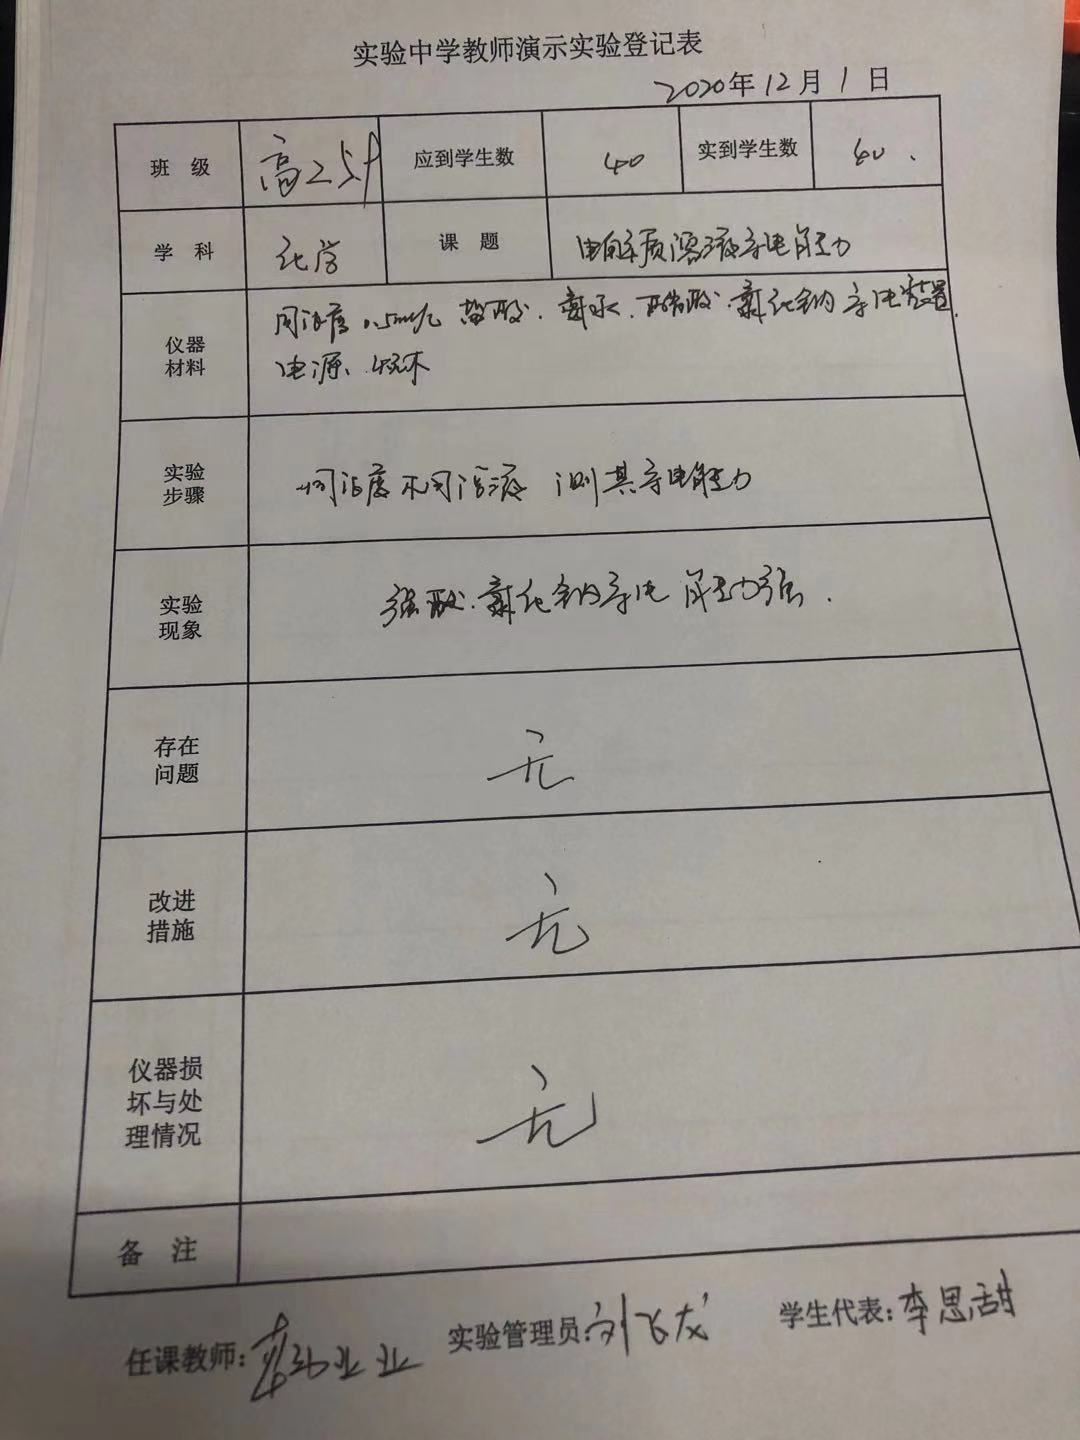 实验中学教师演示实验登记表
2020年12月1日
班 级 高二 应到学生数 40 实到学生数 40.
学 科 化学 课 题 电解质溶液导电能力
仪器材料 同浓度0.5mol/L 盐酸.氨水.醋酸.氯化钠 导电装置.
电源、烧杯
实验步骤 同浓度不同溶液 测其导电能力
实验现象 强酸.氯化钠导电能力强.
存在问题 无
改进措施 无
仪器损坏与处理情况 无
备 注
任课教师: 实验管理员:刘飞龙 学生代表:李思甜